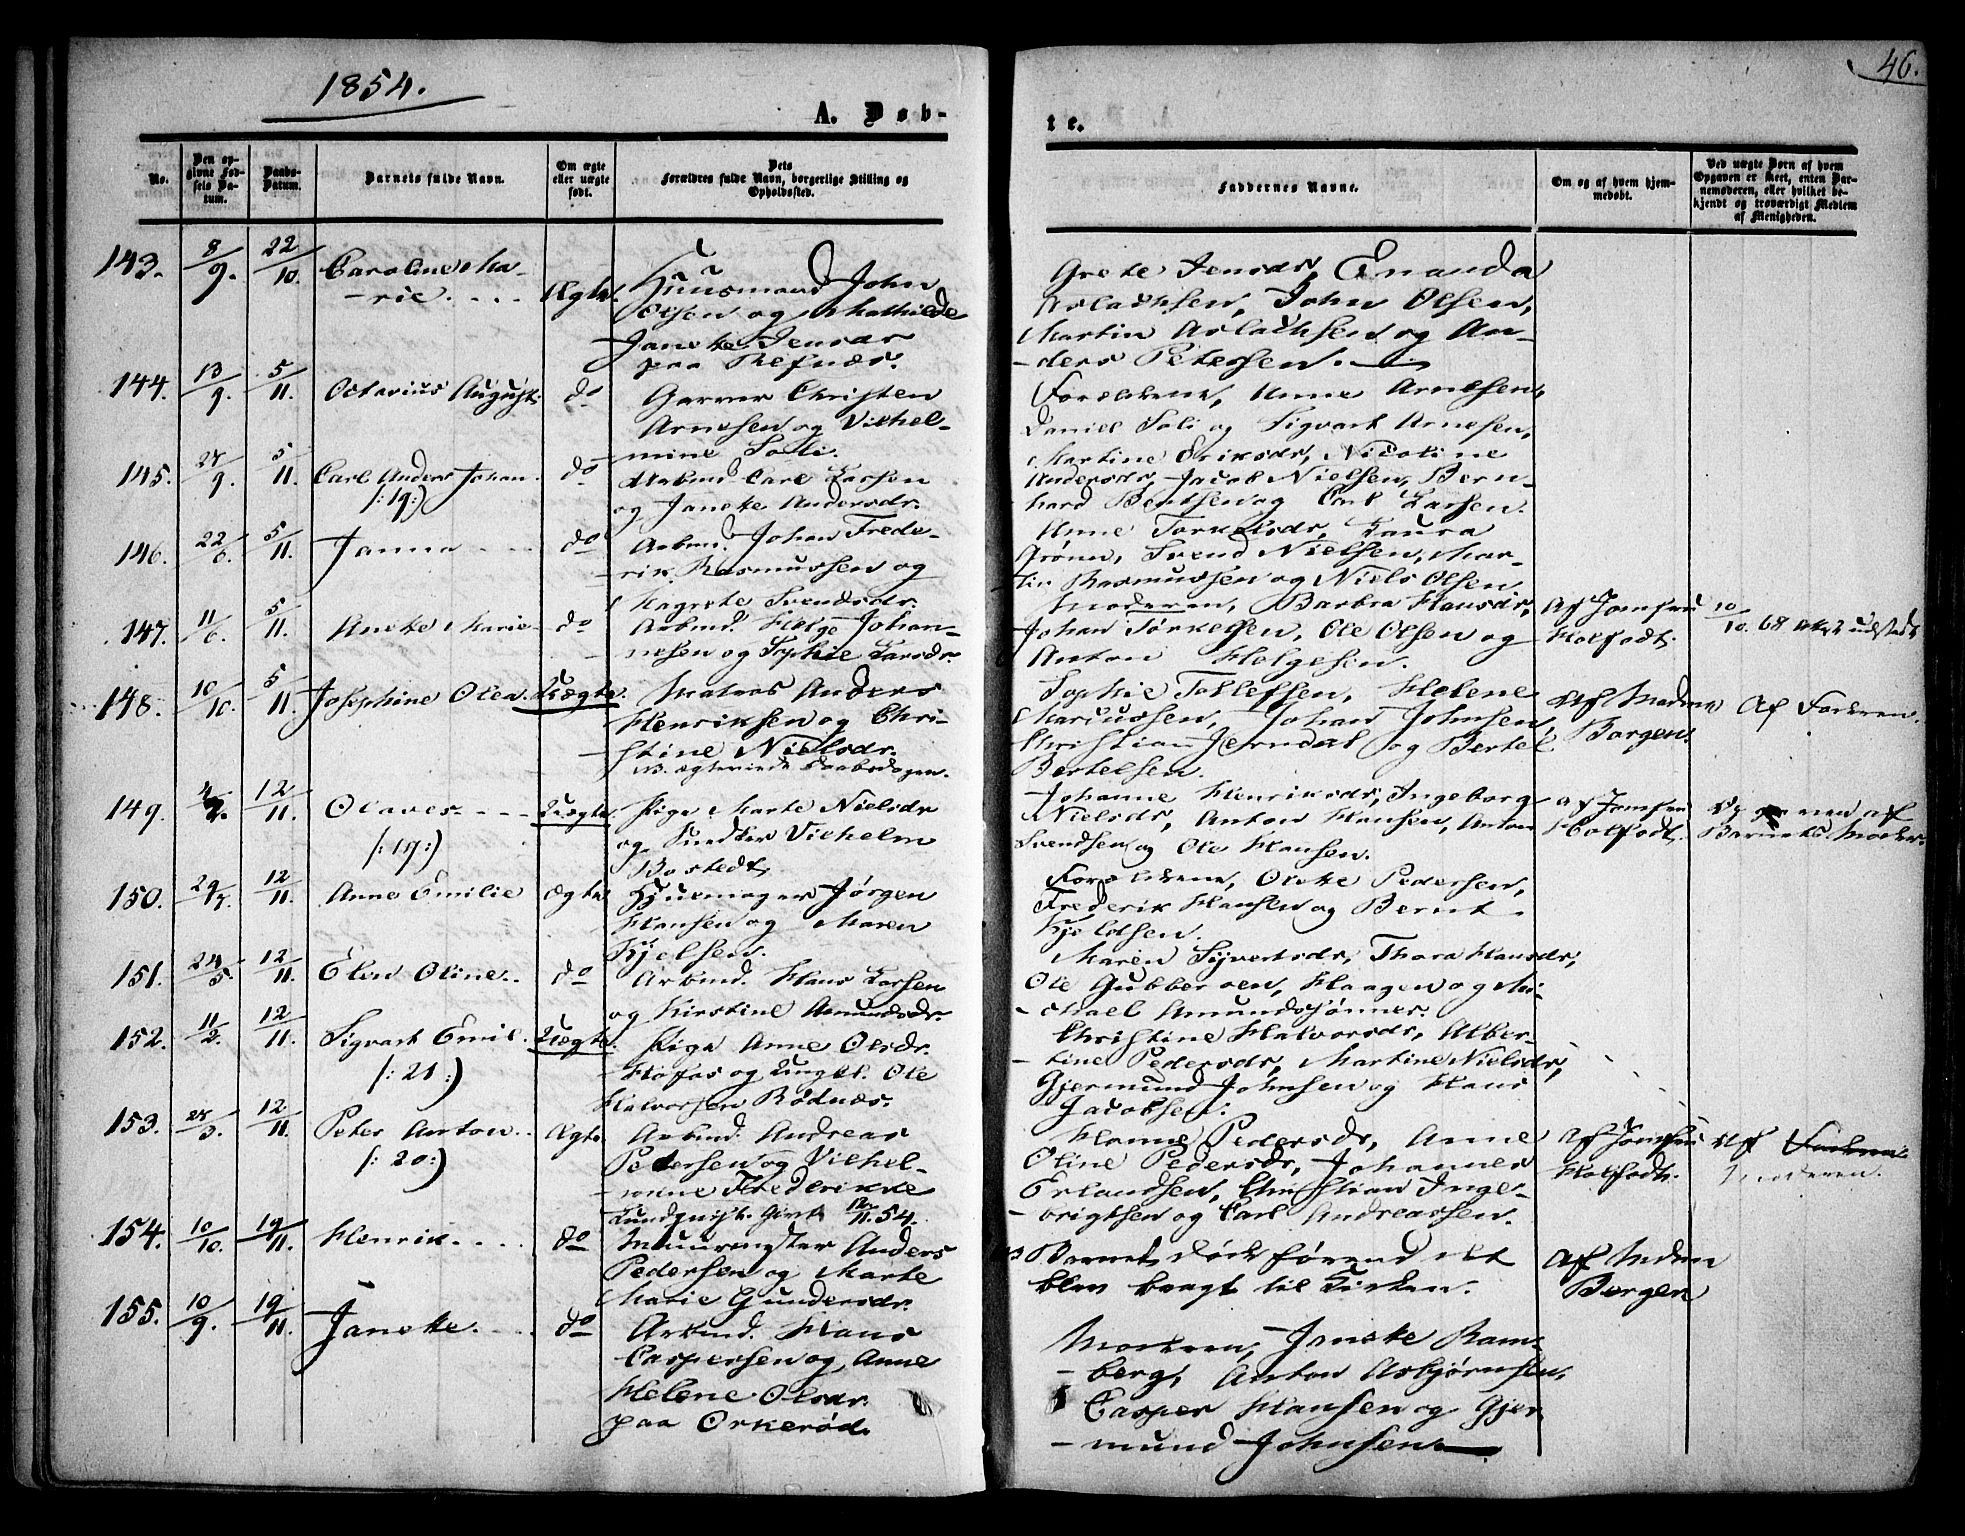 1854.
46.
A. Døb-
te.
No.
Den op-
givne Fød-
sels Da-
tum.
Daabs-
Datum.
Barnets fulde Navn.
Om ægte
eller uægte
født.
Dets
Forældres fulde Navn, borgerlige Stilling og
Opholdssted.
Faddernes Navne.
Om og af hvem hjem-
medøbt.
Ved uægte Børn af hvem
Opgaven er skeet, enten Bar-
nemoderen, eller hvilket be-
kjendt og troværdigt Medlem
af Menigheden.
143. 8/9. 22/10. Caroline Ma-
-rie. Ægte. Huusmand John
Olsen og Mathilde
Janete Jensdr
paa Refnæs.
Grete Jensdr, Enanda
Aslachsen, John Olsen,
Martin Aslachsen og An-
-ders Petersen.
144. 13/9. 5/11. Octavius August. do Garver Christen
Arnesen og Vilhel-
mine Soli.
Forældrene, Anne Arnesen,
Daniel Soli og Sigvart Arnesen,
145. 5/11. Carl Anders Johan.
/:19:/ do Arbmd Carl Larsen
og Janete Andersdr.
Martine Eriksdr, Nicoline
Andersdr, Jacob Nielsen, Bern-
hard Bentsen og Carl Larsen.
146. 22/6. 5/11. Janna do Arbmd. Johan Frede-
-rik Rasmussen og
Magrete Svendsdr.
Anne Torkelsdr, Laura
Grøner, Svend Nielsen, Mar-
tin Rasmussen og Niels Olsen.
147. 11/6. 5/11. Anete Marie do Arbmd. Helge Johan-
-nesen og Sophie Larsdr.
Moderen, Barbra Hansdr,
Johan Torkelsen, Ole Olsen og
Anton Helgesen.
Af Jomfru
Holfodt.
10/10. 68 udstedt
148. 10/10. 5/11. Josephine Olea. Uægte. Matros Anders
Henriksen og Chri-
-stine Nielsdr.
NB. ægteviede Daabsdagen.
Sophie Tollefsen, Helene
Marcussen, Johan Johnsen,
Christian Jerndal og Bertel
Bertelsen.
Af Madme
Borgen.
Af Faderen.
149. 12/11. Olaves
/:19:/ Uægte Pige Marte Nielsdr
og Vilhelm
Bostedt.
Johanne Henriksdr, Ingeborg
Nielsdr, Anton Hansen, Anton
Svendsen og Ole Hansen.
Af Jomfru
Holfodt.
Opgaven af
Barnets Moder.
150. 12/11. Anne Emilie Ægte Hjulmager Jørgen
Hansen og Maren
Kjelsen.
Forældrene, Olete Pedersen,
Frederik Hansen og Bernt
Kjeldsen.
151. 24/5. 12/11. Elen Oline. do Arbmd. Hans Larsen
og Kirstine Amundsdr.
Maren Syvertsdr, Thora Hansdr,
Ole Gubberoen, Haagen og Mi-
-chael Amundsønner.
152. 11/2. 12/11. Sigvart Emil.
/:21:/ Uægte. Pige Anne Olsdr.
Høfos og Ungkl. Ole
Halvorsen Rødnæs.
Christine Halvorsdr, Alber-
-tine Pedersdr, Martine Nielsdr,
Gjermund Johnsen og Hans
Jacobsen.
153. 12/11. Peter Anton.
/:20:/ Ægte Arbmd. Andreas
Pedersen og Vilhel-
-mine Frederikke
Lundquist. Givt 12/11.54.
Hanne Pedersdr, Anne
Oline Pedersdr, Johannes
Erlandsen, Christian Inge-
-brigtsen og Carl Andreassen.
Af Jomfru
Holfodt.
Af Faderen
Moderen.
154. 10/10. 19/11. Henrik. do Muurmester Anders
Pedersen og Marte
Marie Gundersdr.
Barnet døde førend det
blev bragt til Kirken.
Af Mdm
Borgen
155. 10/9. 19/11. Janete. do Arbmd. Hans
Caspersen og Anne
Helene Olsdr.
paa Orkerød.
Moderen, Janete Ram-
-berg, Anton Asbjørnsen,
Casper Hansen og Gjer-
-mund Johnsen.